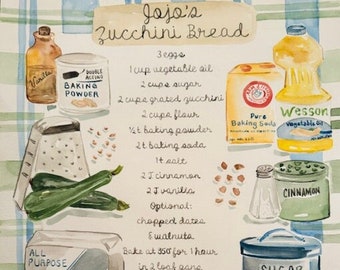 Jojo's
Zucchini Bread
3 eggs
1 cup vegetable oil
2 cups sugar
2 cups grated zucchini
2 cups flour
baking powder
baking soda
salt
cinnamon
vanilla
Optional:
chopped dates
& walnuts
Bake at 350° for 1 hour
in 2 loaf pans
Vanilla
DOUBLE ACTING
BAKING POWDER
Pure
Baking Soda
Wesson
Vegetable Oil
CINNAMON
ALL PURPOSE
SUGAR